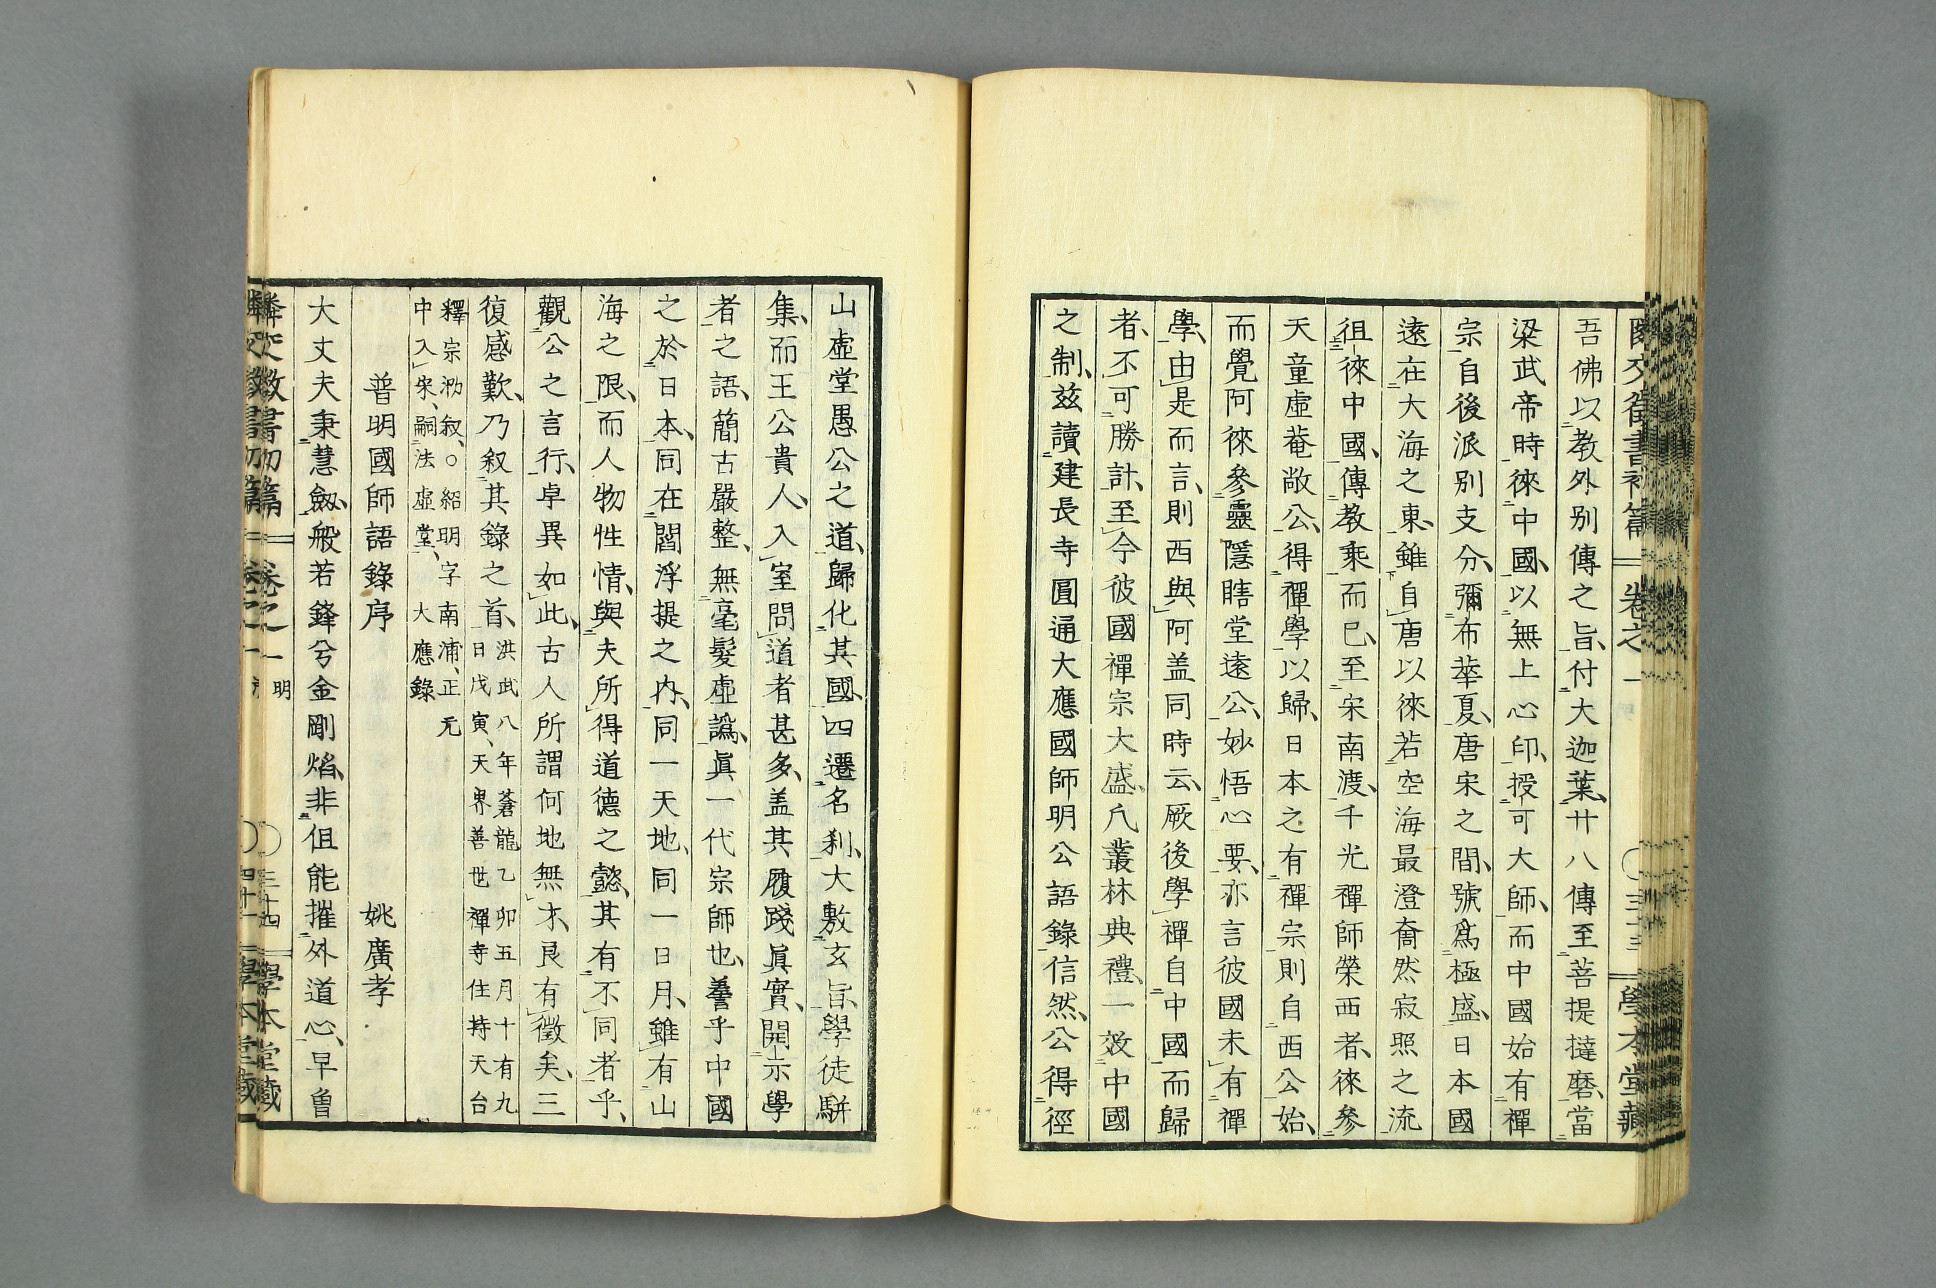 吾佛以教外別傳之旨付大迦葉廿八傳至菩提撻磨當
梁武帝時徠中國以無上心印授可大師而中國始有禪
宗自後派別支分彌布華夏唐宋之間號爲極盛日本國
遠在大海之東雖自唐以徠若空海最澄奝然寂照之流
徂徠中國傳教乘而已至宋南渡千光禪師榮西者徠參
天童虛菴敞公得禪學以歸日本之有禪宗則自西公始
而覺阿徠參靈隱瞎堂遠公妙悟心要亦言彼國未有禪
學由是而言則西與阿盖同時云厥後學禪自中國而歸
者不可勝計至今彼國禪宗大盛凡叢林典禮一效中國
之制茲讀建長寺圓通大應國師明公語錄信然公得徑
山虛堂愚公之道歸化其國四遷名刹大敷玄旨學徒駢
集而王公貴人入室問道者甚多盖其履踐眞實開示學
者之語簡古嚴整無毫髮虛譌眞一代宗師也善乎中國
之於日本同在閻浮提之內同一天地同一日月雖有山
海之限而人物性情與夫所得道德之懿其有不同者乎
觀公之言行卓異如此古人所謂何地無才良有徵矣三
復感歎乃叙其錄之首洪武八年蒼龍乙卯五月十有九
日戊寅天界善世禪寺住持天台
釋宗泐叙○紹明字南浦正元
中入宋嗣法虛堂大應錄
普明國師語錄序 姚廣孝
大丈夫秉慧劔般若鋒兮金剛焰非但能摧外道心早曾